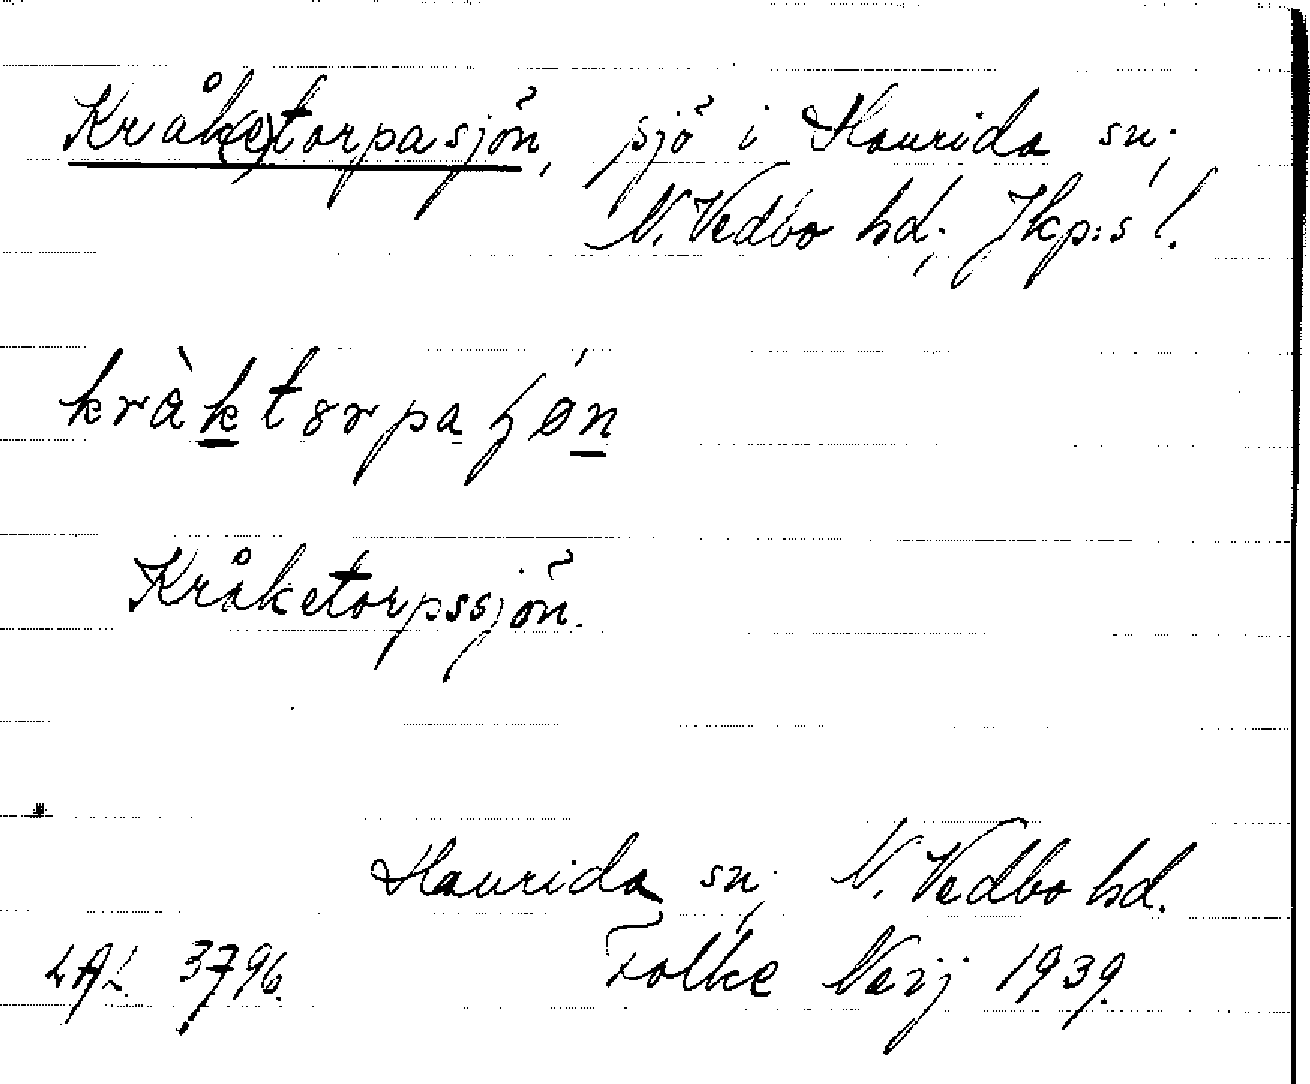 Kråk(e)torpasjön, sjö i Haurida sn;
N. Vedbo hd; Jkp:s l.
kràktorpaʃǿn
Kråketorpssjön.
Haurida sn; N. Vedbo hd.
LAL. 3796. Folke Nerj 1939.